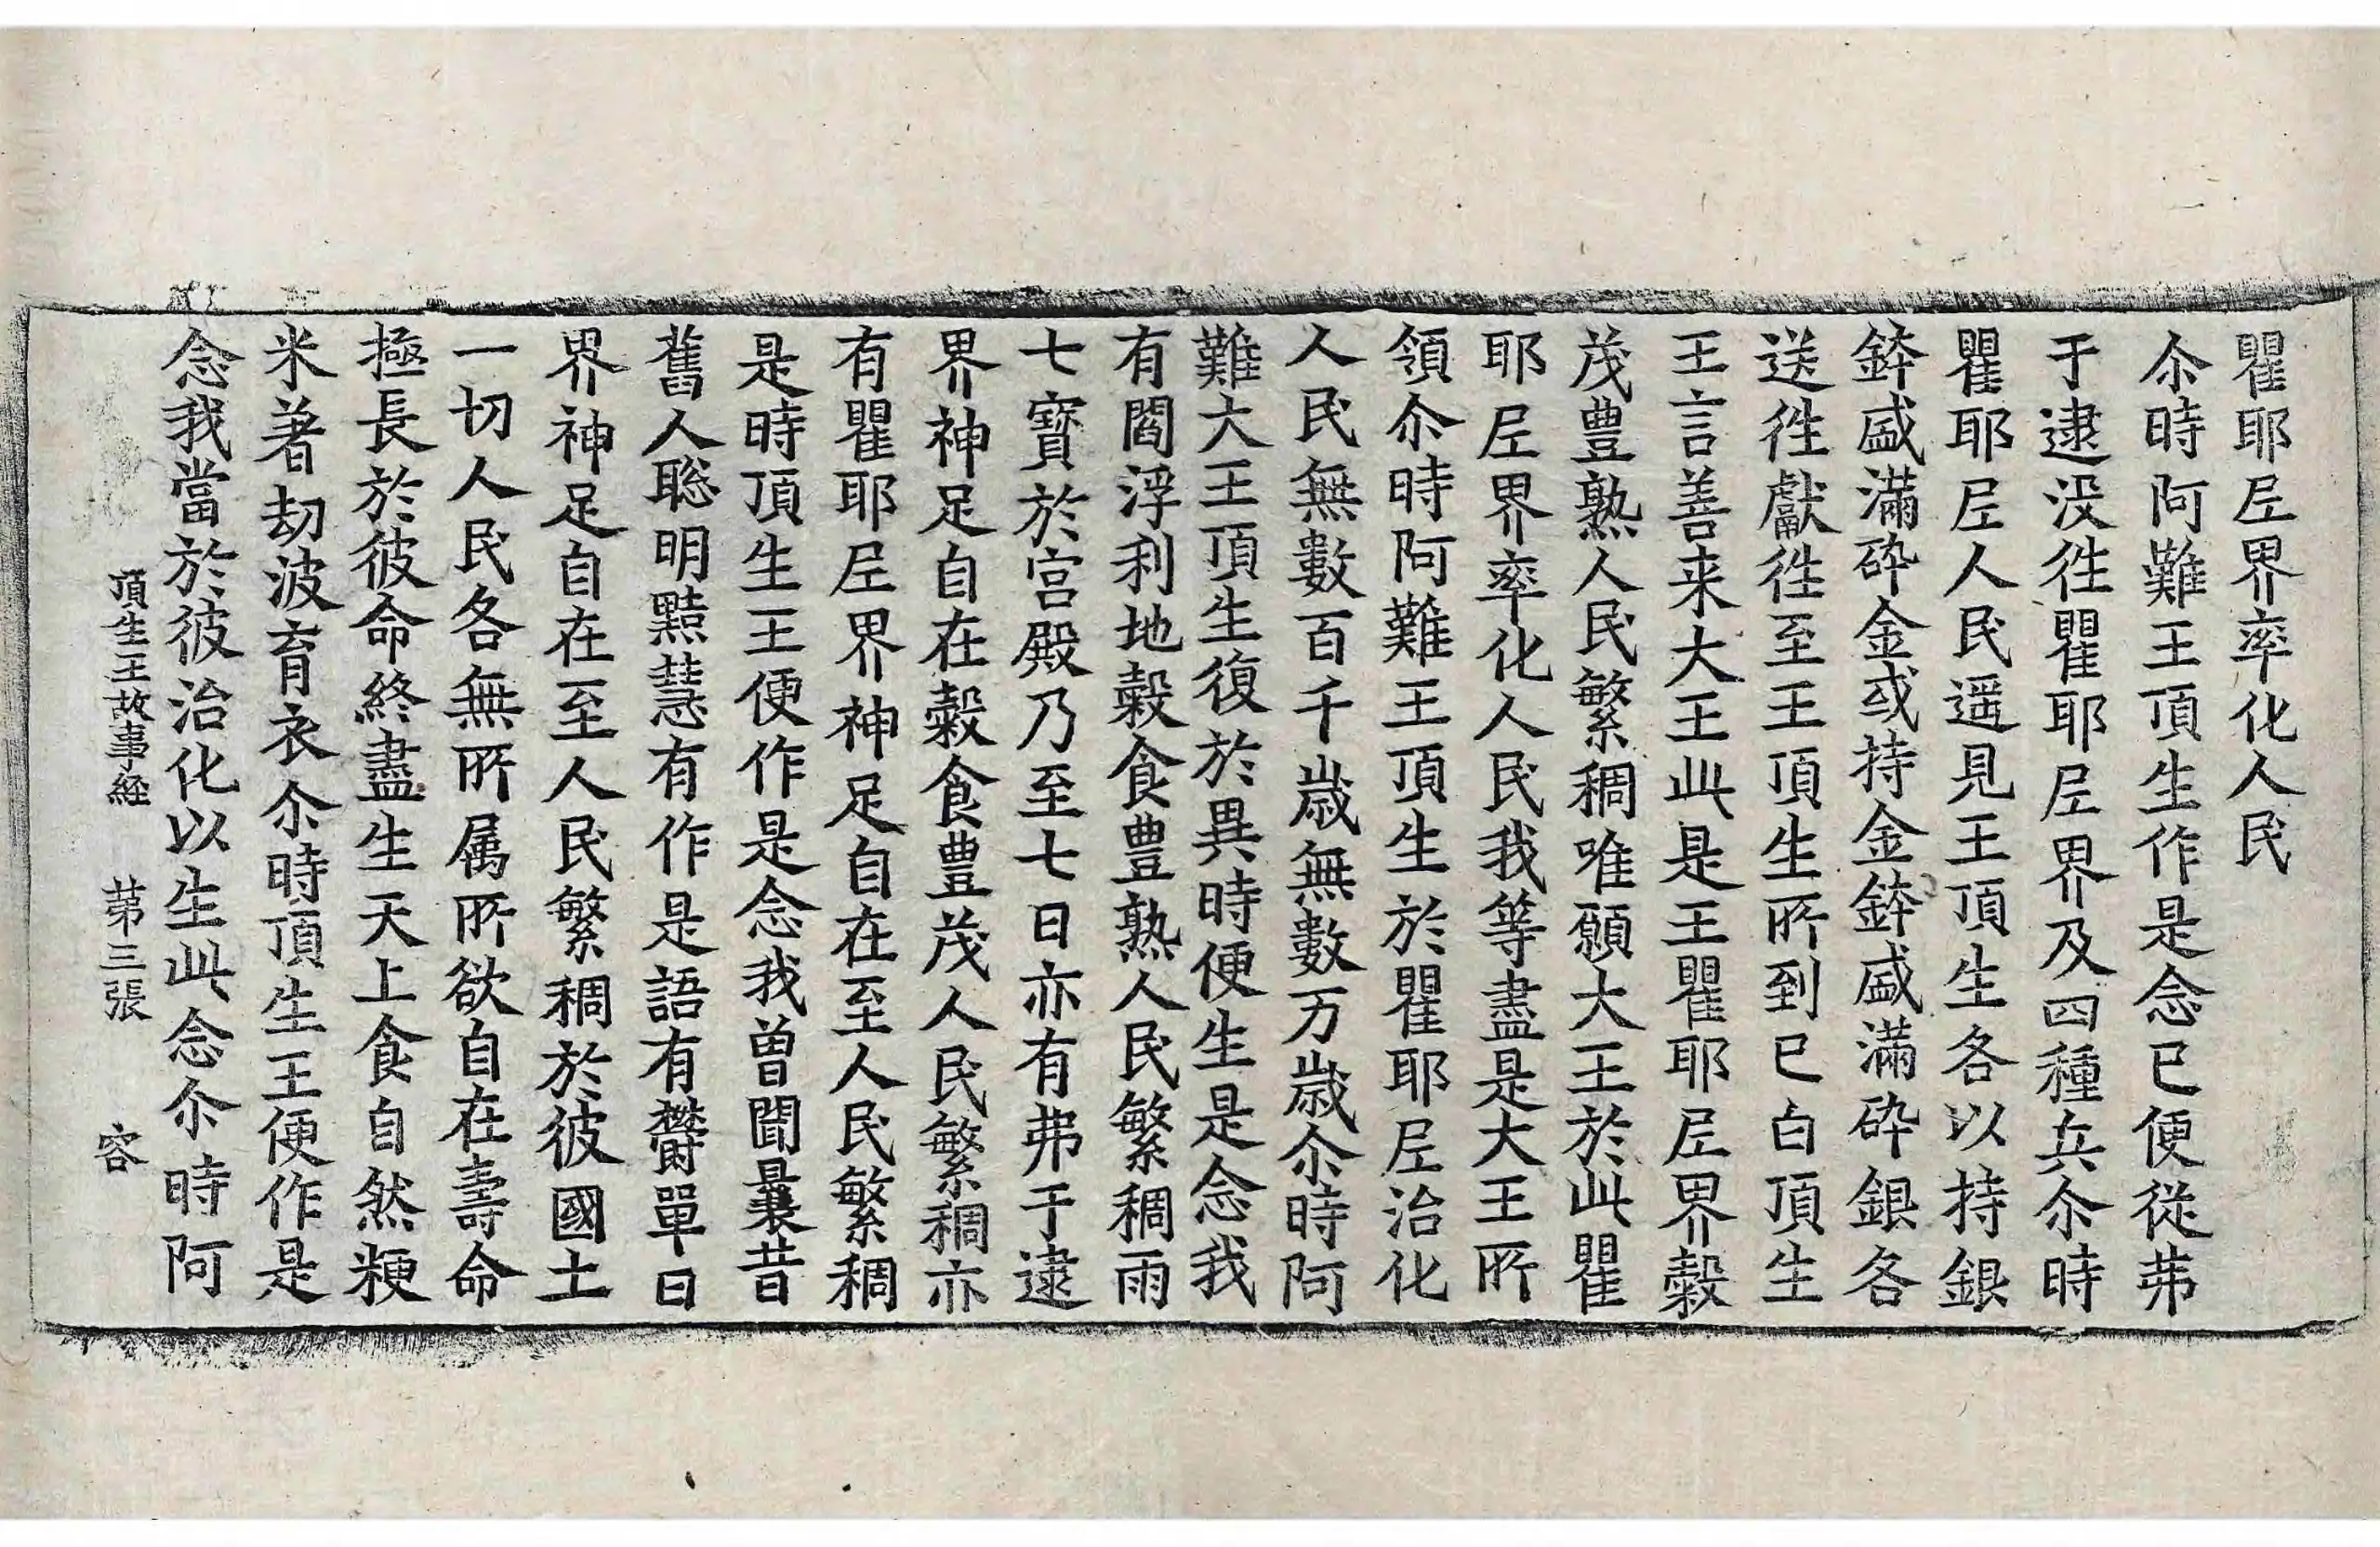 瞿耶尼界率化人民
尒時阿難王頂生作是念已便從弗
于逮没徃瞿耶尼界及四種兵尒時
瞿耶尼人民遥見王頂生各以持銀
鉢盛滿碎金或持金鉢盛滿碎銀各
送徃獻徃至王頂生所到已白頂生
王言善来大王此是王瞿耶尼界穀
茂豊熟人民繁稠唯願大王於此瞿
耶尼界率化人民我等盡是大王所
領尒時阿難王頂生於瞿耶尼治化
人民無數百千歳無數万歳尒時阿
難大王頂生復於異時便生是念我
有閻浮利地穀食豊熟人民繁稠雨
七寳於宫殿乃至七日亦有弗于逮
界神足自在穀食豊茂人民繁稠亦
有瞿耶尼界神足自在至人民繁稠
是時頂生王便作是念我曽聞曩昔
舊人聡明黠慧有作是語有欝單曰
界神足自在至人民繁稠於彼國土
一切人民各無所属所欲自在壽命
極長於彼命終盡生天上食自然粳
米著劫波育衣尒時頂生王便作是
念我當於彼治化以生此念尒時阿
頂生王故事経 苐三張 容